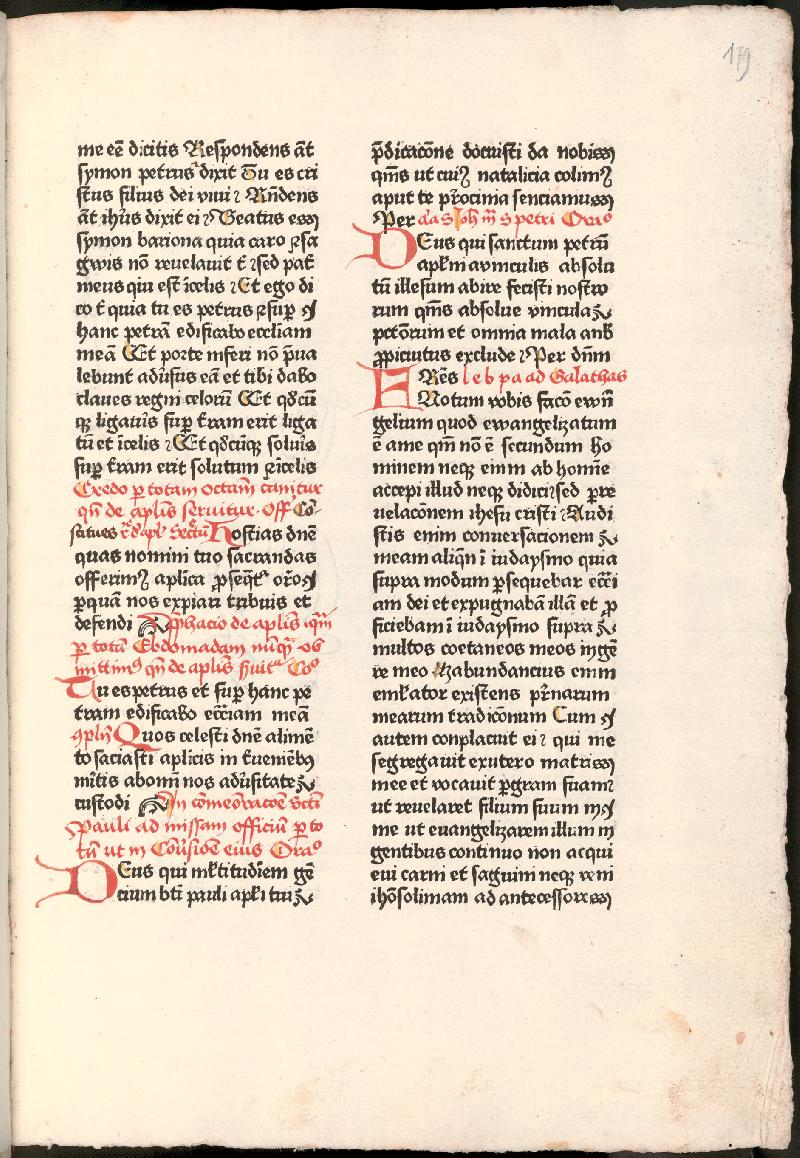 179
me eē dicitis Respondens āt
symon petrus dixit Tu es cri
stus filius dei viui Rn̄dens
āt ihūs dixit ei Beatus es
symon bariona quia caro & sa
gwis nō reuelauit t̄ sed pat̄
meus qui est īcelis Et ego di
co t̄ quia tu es petrus & sup̄
hanc petrā edificabo eccliam
meā Et porte inferi nō p̄ua
lebunt adūsus eā et tibi dabo
claues regni celorū Et qd̄cū
qꝫ ligaūis sup̄ t̄ram erit liga
tū et īcelis Et qd̄cūqꝫ soluīs
sup̄ t̄ram erit solutum & īcelis
Credo ꝑ totam octauā canitur
qn̄ de aplīs seruitur Off Cō
stitues Sectū Hostias dn̄e
quas nomini tuo sacrandas
offerimꝰ aplīca ꝓseqt̄ or̄o
ꝑquā nos expiari tribuis et
defendi p̄fhacio de aplīs
ꝑ totā Ebdomadam ob
mittimꝰ qn̄ de aplīs Cōo
Tu es petrus et sup̄ hanc pe
tram edificabo ecc̄iam meā
9plīn Quos celesti dn̄e alimē
to saciasti aplīcis in t̄ueniēbꝰ
nos adūsitate
custodi In cōmeōracōe sc̄ti
Pauli ad missam officiū ꝑ to
tū ut in Cōuīsiōe eius Orāo
Deus qui ml̄titudīem gē
cium bt̄i pauli apl̄i tui
p̄dicacōne docuisti da nobis
qm̄s ut cuiꝰ natalicia colimꝰ
aput te pr̄ocinia senciamus
Per s petri Orāo
Deus qui sanctum petrū
apl̄m avinculis absolu
tū illesum abire fecisti nostro
rum qm̄s absolue vincula
pctōrum et omnia mala anb̄
ꝓpiciatus exclude Per dn̄m
FRēs le b pa ad Galathas
Notum vobis faciō ewn̄
gelium quod ewangelizatum
ē ame qm̄ nō ē secundum ho
minem neqꝫ enim ab homīe
accepi illud neqꝫ didici sed ꝑ re
uelacōnem ihesu cristi Audi
stis enim conuersacionem
meam aliqn̄ ī iudaysmo quia
supra modum ꝑsequebar ecc̄i
am dei et expugnabā illā et ꝓ
ficiebam ī iudaysmo supra
multos coetaneos meos in gēe
re meo habundancius enim
eml̄ator existens pr̄narum
mearum tradicōnum Cum
autem conplacuit ei qui me
segregauit exutero matris
mee et vocauit ꝑ gram suam
ut reuelaret filium suum in
me ut euangelizarem illum in
gentibus continuo non acqui
eui carni et saguini neqꝫ veni
ihōsolimam ad antecessores